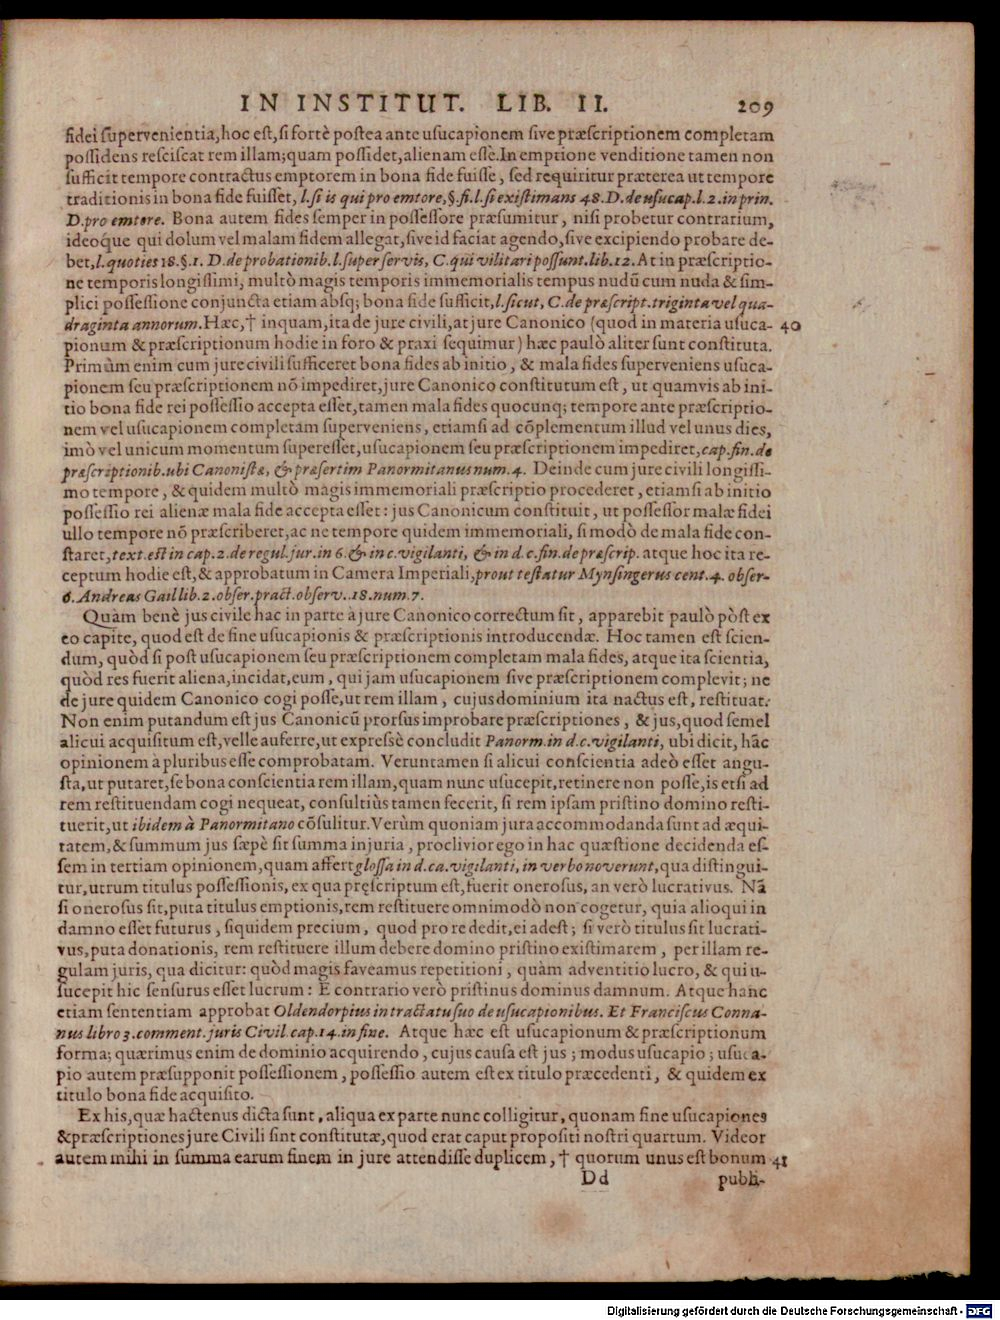 IN INSTITUT. LIB. II. 209
fidei supervenientia, hoc est, si fortè postea ante usucapionem sive præscriptionem completam
possidens resciscat rem illam; quam possidet, alienam esse. In emptione venditione tamen non
sufficit tempore contractus emptorem in bona fide fuisse, sed requiritur præterea ut tempore
traditionis in bona fide fuisset, l. si is qui pro emtore, §. fi. l. si existimans 48. D. de usucap. l. 2. in prin.
D. pro emtore. Bona autem fides semper in possessore præsumitur, nisi probetur contrarium,
ideoque qui dolum vel malam fidem allegat, sive id faciat agendo, sive excipiendo probare de-
bet, l. quoties 18. §. 1. D. de probationib. l. super servis, C. qui vilitari possunt. lib. 12. At in præscriptio-
ne temporis longissimi, multò magis temporis immemorialis tempus nudū cum nuda & sim-
plici possessione conjuncta etiam absq; bona fide sufficit, l. sicut, C. de præscript. triginta vel qua-
draginta annorum. Hæc, † inquam, ita de jure civili, at jure Canonico (quod in materia usuca- 40
pionum & præscriptionum hodie in foro & praxi sequimur) hæc paulò aliter sunt constituta.
Primùm enim cum jure civili sufficeret bona fides ab initio, & mala fides superveniens usuca-
pionem seu præscriptionem nō impediret, jure Canonico constitutum est, ut quamvis ab ini-
tio bona fide rei possessio accepta esset, tamen mala fides quocunq; tempore ante præscriptio-
nem vel usucapionem completam superveniens, etiamsi ad cōplementum illud vel unus dies,
imò vel unicum momentum superesset, usucapionem seu præscriptionem impediret, cap. fin. de
præscriptionib. ubi Canonistæ, & præsertim Panormitanus num. 4. Deinde cum jure civili longissi-
mo tempore, & quidem multò magis immemoriali præscriptio procederet, etiamsi ab initio
possessio rei alienæ mala fide accepta esset: jus Canonicum constituit, ut possessor malæ fidei
ullo tempore nō præscriberet, ac ne tempore quidem immemoriali, si modò de mala fide con-
staret, text. est in cap. 2. de regul. jur. in 6. & in c. vigilanti, & in d. c. fin. de præscrip. atque hoc ita re-
ceptum hodie est, & approbatum in Camera Imperiali, prout testatur Mynsingerus cent. 4. obser-
6. Andreas Gail lib. 2. obser. pract. observ. 18. num. 7.
Quàm benè jus civile hac in parte à jure Canonico correctum sit, apparebit paulò pòst ex
eo capite, quod est de fine usucapionis & præscriptionis introducendæ. Hoc tamen est scien-
dum, quòd si post usucapionem seu præscriptionem completam mala fides, atque ita scientia,
quòd res fuerit aliena, incidat, eum, qui jam usucapionem sive præscriptionem complevit; ne
de jure quidem Canonico cogi posse, ut rem illam, cujus dominium ita nactus est, restituat.
Non enim putandum est jus Canonicū prorsus improbare præscriptiones, & jus, quod semel
alicui acquisitum est, velle auferre, ut expressè concludit Panorm. in d. c. vigilanti, ubi dicit, hāc
opinionem à pluribus esse comprobatam. Veruntamen si alicui conscientia adeò esset angu-
sta, ut putaret, se bona conscientia rem illam, quam nunc usucepit, retinere non posse, is etsi ad
rem restituendam cogi nequeat, consultiùs tamen fecerit, si rem ipsam pristino domino resti-
tuerit, ut ibidem à Panormitano cōsulitur. Verùm quoniam jura accommodanda sunt ad æqui-
tatem, & summum jus sæpè sit summa injuria, proclivior ego in hac quæstione decidenda es-
sem in tertiam opinionem, quam affert glossa in d. ca. vigilanti, in verbo noverunt, qua distingui-
tur, utrum titulus possessionis, ex qua pręscriptum est, fuerit onerosus, an verò lucrativus. Nā
si onerosus sit, puta titulus emptionis, rem restituere omnimodò non cogetur, quia alioqui in
damno esset futurus, siquidem precium, quod pro re dedit, ei adest; si verò titulus sit lucrati-
vus, puta donationis, rem restituere illum debere domino pristino existimarem, per illam re-
gulam juris, qua dicitur: quòd magis faveamus repetitioni, quàm adventitio lucro, & qui u-
sucepit hic sensurus esset lucrum: E contrario verò pristinus dominus damnum. Atque hanc
etiam sententiam approbat Oldendorpius in tractatu suo de usucapionibus. Et Franciscus Conna-
nus libro 3. comment. juris Civil. cap. 14. in fine. Atque hæc est usucapionum & præscriptionum
forma; quærimus enim de dominio acquirendo, cujus causa est jus; modus usucapio; usuca-
pio autem præsupponit possessionem, possessio autem est ex titulo præcedenti, & quidem ex
titulo bona fide acquisito.
Ex his, quæ hactenus dicta sunt, aliqua ex parte nunc colligitur, quonam fine usucapiones
& præscriptiones jure Civili sint constitutæ, quod erat caput propositi nostri quartum. Videor
autem mihi in summa earum finem in jure attendisse duplicem, † quorum unus est bonum 41
Dd publi-
Digitalisierung gefördert durch die Deutsche Forschungsgemeinschaft - DFG